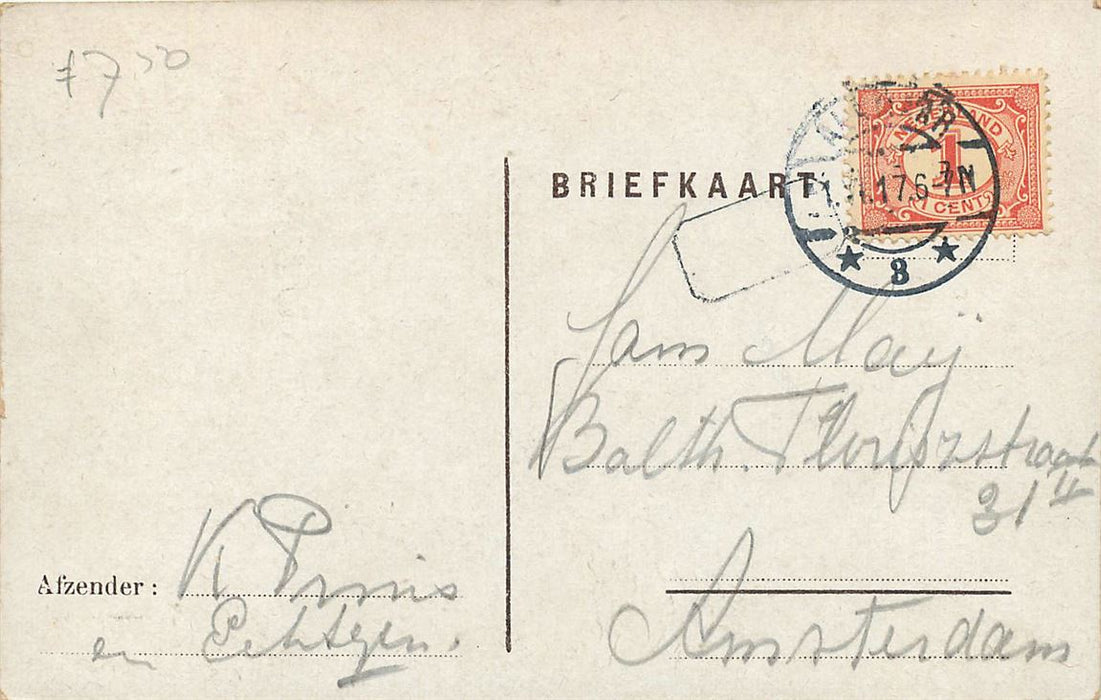 f 7 50
NEDERLAND
1
1 CENT
17.6-7N
3
BRIEFKAART
Sam Maij
Balth. Florijszstraat
31 II
Amsterdam
Afzender: K Prins
en